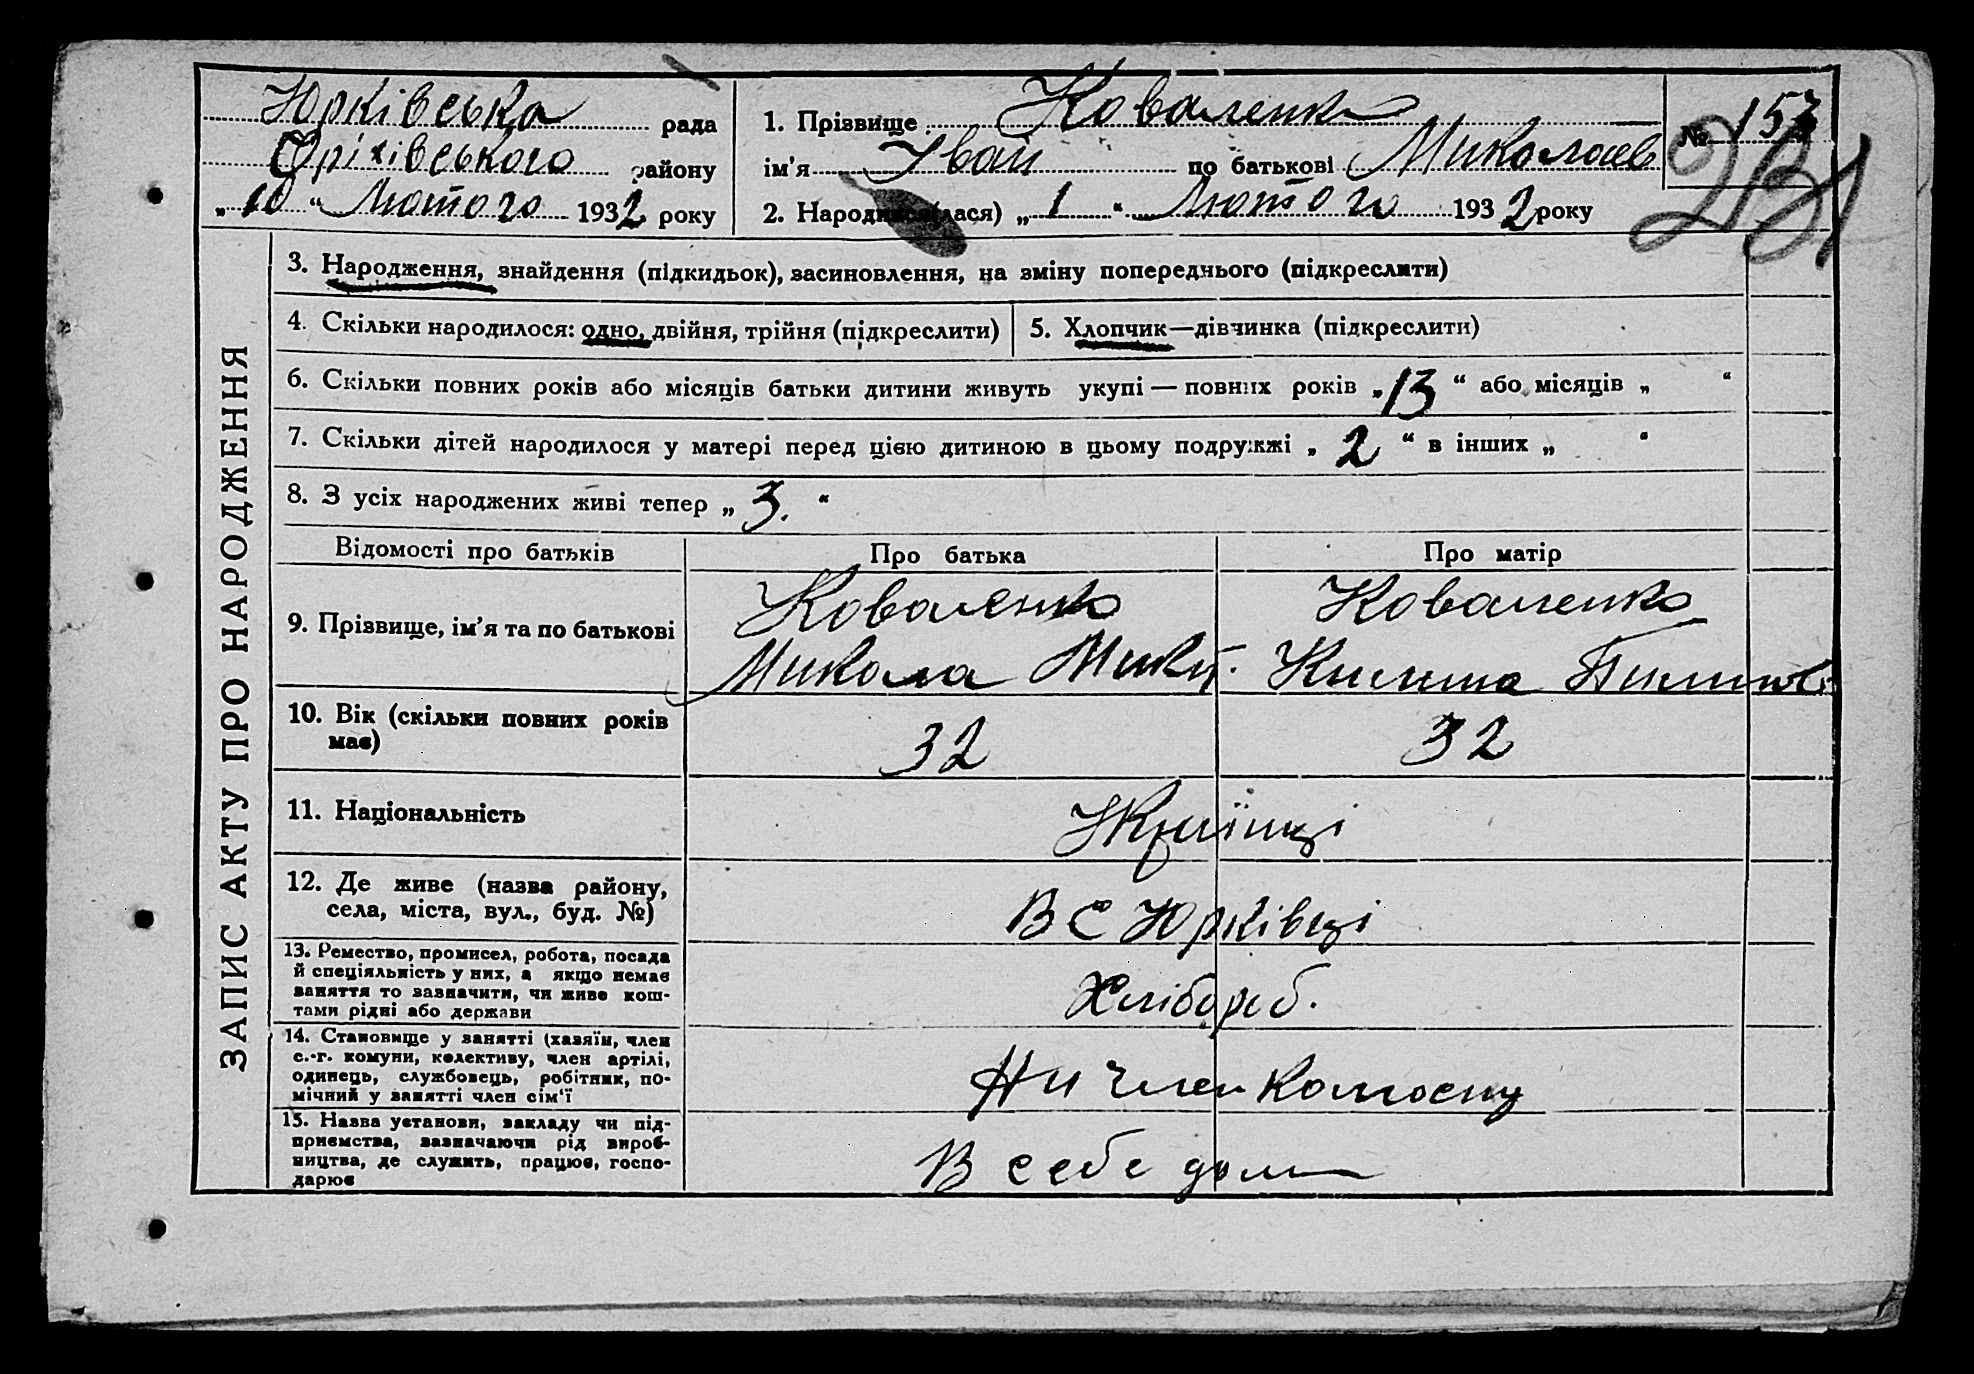 Юрківська рада
Оріхівського району
„10“ Лютого 1932 року
1. Прізвище Коваленко
ім’я Іван по батькові Миколаєв
2. Народився(лася) „1“ Лютого 1932 року
№ 157
231
ЗАПИС АКТУ ПРО НАРОДЖЕННЯ
3. Народження, знайдення (підкидьок), засиновлення, на зміну попереднього (підкреслити)
4. Скільки народилося: одно, двійня, трійня (підкреслити)
5. Хлопчик—дівчинка (підкреслити)
6. Скільки повних років або місяців батьки дитини живуть укупі — повних років „13“ або місяців „ “
7. Скільки дітей народилося у матері перед цією дитиною в цьому подружжі „2“ в інших „ “
8. З усіх народжених живі тепер „3.“
Відомості про батьків
Про батька
Про матір
9. Прізвище, ім’я та по батькові
Коваленко
Микола Микит.
Коваленко
Килина Пилипов.
10. Вік (скільки повних років
має)
32
32
11. Національність
Українці
12. Де живе (назва району,
села, міста, вул., буд. №)
В с Юрківці
13. Ремество, промисел, робота, посада
й спеціяльність у них, а якщо немає
заняття то зазначити, чи живе кош-
тами рідні або держави
Хлібороб.
14. Становище у занятті (хазяїн, член
с.-г. комуни, колективу, член артілі,
одинець, службовець, робітник, по-
мічний у занятті член сім’ї
Ни член колгоспу
15. Назва установи, закладу чи під-
приємства, зазначаючи рід вироб-
ництва, де служить, працює, госпо-
дарює
В себе дома